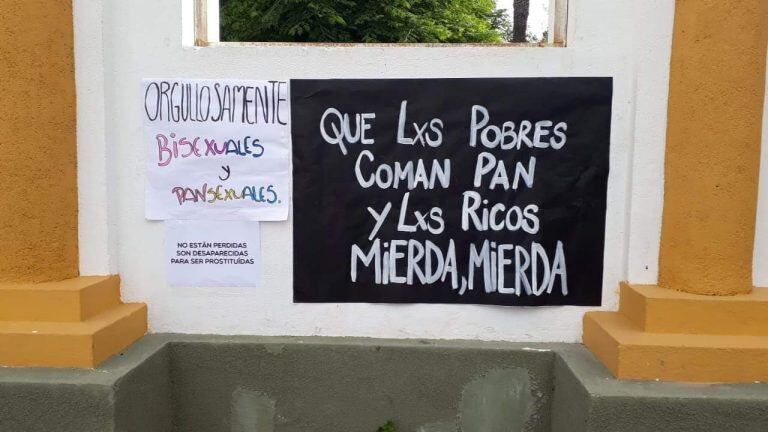 ORGULLOSAMENTE
BISEXUALES
y
PANSEXUALES.
NO ESTÁN PERDIDAS
SON DESAPARECIDAS
PARA SER PROSTITUÍDAS
QUE LxS POBRES
COMAN PAN
y LxS RICOS
MiERDA, MiERDA